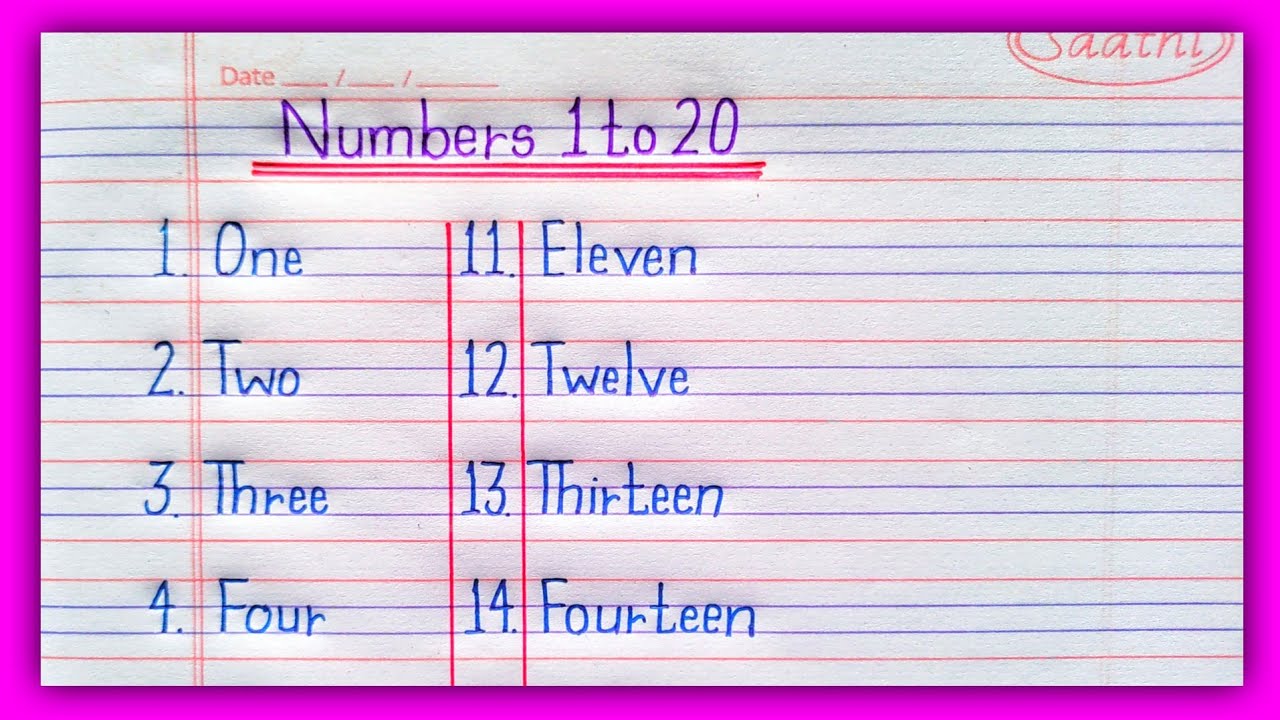 Saathi
Date ___ / ___ / _____
Numbers 1 to 20
1. One 11. Eleven
2. Two 12. Twelve
3. Three 13. Thirteen
4. Four 14. Fourteen